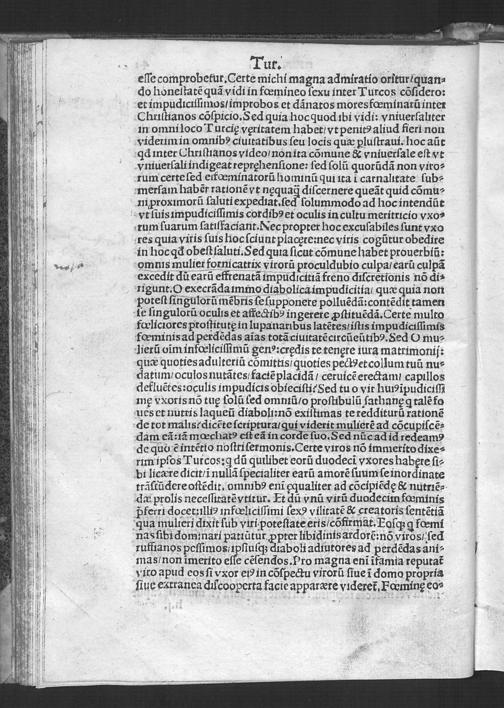 Tur.
esse comprobetur. Certe michi magna admiratio oritur/quan-
do honestatē quā vidi in fœmineo sexu inter Turcos cōsidero:
et impudicissimos/improbos et dānatos mores fœminarū inter
Christianos cōspicio. Sed quia hoc quod ibi vidi: vniuersaliter
in omni loco Turcię vęritatem habet/vt penitꝰ aliud fieri non
viderim in omnibꝰ ciuitatibus seu locis quæ plustraui. hoc aūt
qd inter Christianos video/non ita cōmune & vniuersale est vt
vniuersali indigeat repręhensione: sed solū quorūdā non viro-
rum certe sed eiꝰœminatorū hominū qui ita ī carnalitate sub-
mersam habēt rationē vt nęquaq̄ discernere queāt quid cōmu-
ni proximorū saluti expediat. sed solummodo ad hoc intendūt
vt suis impudicissimis cordibꝰ et oculis in cultu meritricio vxo-
rum suarum satisfaciant. Nec propter hoc excusabiles sunt vxo
res quia viris suis hoc sciunt placęre: nec viris cogūtur obedire
in hoc qd obest saluti. Sed quia sicut cōmune habet prouerbiū:
omnis mulier fornicatrix virorū proculdubio culpa/earū culpā
excedit dū earū effrenatā impudicitiā freno discretionis nō di-
rigunt. O execrāda immo diabolica impudicitia/ quæ quia non
potest singulorū mēbris se supponere polluēdā: contēdit tamen
se singulorū oculis et affectibꝰ ingerere ꝓstituēdā. Certe multo
fœliciores prostitutę in lupanaribus latētes/istis impudicissimis
fœminis ad perdēdas aīas totā ciuitatē circūeūtibꝰ. Sed O mu-
lierū oīm infœlicissimū genꝰ: crędis te tenęre iura matrimonij:
quæ quoties adulteriū cōmittis/quoties pectꝰ et collum tuū nu-
datum/oculos nutātes/faciē placidā/ceruicē erectam/capillos
defluētes: oculis impudicis obiecisti/ Sed tu o vir huiꝰ ipudicissi
mę vxoris nō tuę solū sed omniū/o prostibulū sathanę q̄ talē fo
ues et nutris laqueū diaboli: nō existimas te redditurū rationē
de tot malis/dicēte scriptura/qui viderit mulierē ad cōcupiscē-
dam eā: iā mœchatꝰ est eā in corde suo. Sed nūc ad id redeamꝰ
de quō ē intētio nostri sermonis. Certe viros nō immerito dixe-
rim ipsos Turcos; q̄ dū quilibet eorū duodecī vxores habęre si-
bi licęre dicit/ī nullā specialiter earū amorē suum se inordinate
trāsfūdere ostēdit. omnibꝰ enī ęqualiter ad cōcipiēdę & nutriē-
dæ prolis necessitatē vtitur. Et dū vnū virū duodecim fœminis
p̄ferri docet: illiꝰ infœlicissimi sexꝰ vilitatē & creatoris sentētiā
qua mulieri dixit sub viri potestate eris/cōfirmat. Eosqꝫ q̄ fœmi
nas sibi dominari patiūtur ꝓpter libidinis ardorē: nō viros/sed
ruffianos pessimos/ipsiusqꝫ diaboli adiutores ad perdēdas ani-
mas/non imerito esse cēsendos. Pro magna enī īfamia reputat᷑
viro apud eos si vxor eiꝰ in cōspectu virorū siue ī domo propria
siue extranea discooperta facie apparęre videret᷑. Fœminę eo-